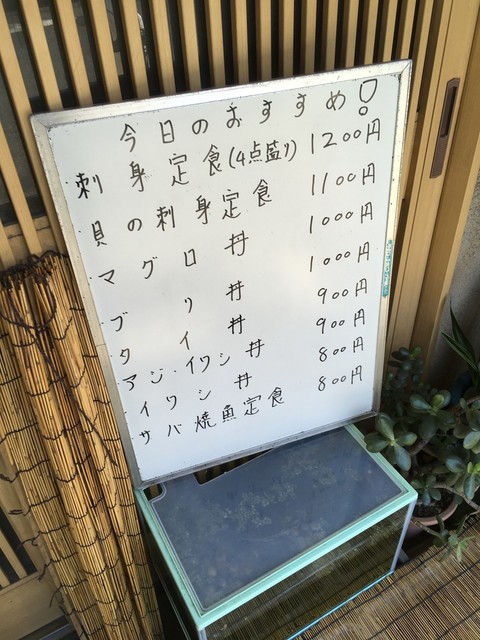 今日のおすすめ!
刺身定食(4点盛り) 1200円
貝の刺身定食 1100円
マグロ丼 1000円
ブリ丼 1000円
タイ丼 900円
アジ・イワシ丼 900円
イワシ丼 800円
サバ焼魚定食 800円